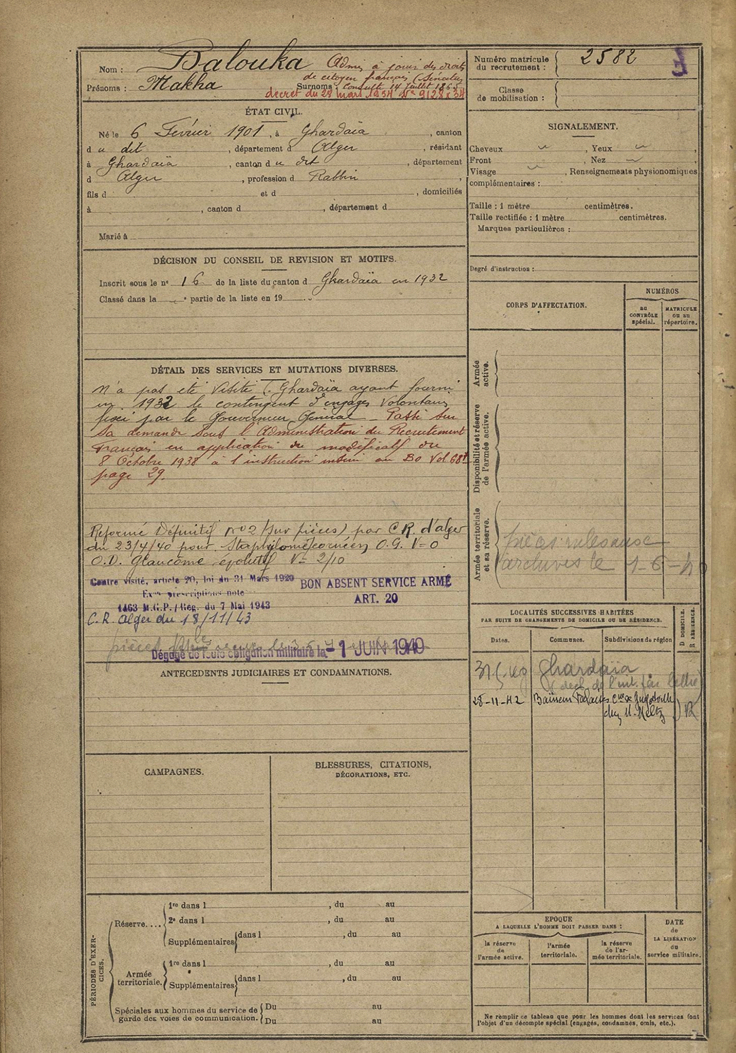 Nom : Balouka Admis à jouir des droits
de citoyen français (Senatus
Prénoms : Makha Surnoms : Consulte 14 Juillet 1865
décret du 28 mars 1934 N° 9128 x 34
ÉTAT CIVIL.
Né le 6 Février 1901, à Ghardaïa, canton
du dit, département d Alger, résidant
à Ghardaïa, canton du dit, département
d Alger, profession d Rabbin
fils d et d , domiciliés
à , canton d , département d
Marié à
DÉCISION DU CONSEIL DE REVISION ET MOTIFS.
Inscrit sous le n° 16 de la liste du canton d Ghardaïa en 1932
Classé dans le partie de la liste en 19
DÉTAIL DES SERVICES ET MUTATIONS DIVERSES.
N'a pas été visité. Ghardaïa ayant fourni
en 1932 le contingent d'engagés volontaires
fixé par le Gouverneur Général - Passé sur
sa demande sous l'Administration du Recrutement
français en application du modificatif du
8 Octobre 1938 à l'instruction au BO Vol 68
page 29.
Réformé Définitif n° 2 (sur pièces) par C.R. d'Alger
du 23/4/40 pour Staphylome cornéen O.G. V=0
O.D. Glaucome évolutif V= 2/10
Contre visité, article 20, loi du 31 Mars 1920
prescriptions note
1463 M.G.P./Rég. du 7 Mai 1943
BON ABSENT SERVICE ARMÉ
ART. 20
C.R. Alger du 18/11/43
Dégagé de toute obligation militaire le -1 JUIN 1949
ANTÉCÉDENTS JUDICIAIRES ET CONDAMNATIONS.
CAMPAGNES.
BLESSURES, CITATIONS,
DÉCORATIONS, ETC.
PÉRIODES D'EXERCICES.
Réserve....
1re dans l , du au
2e dans l , du au
Supplémentaires dans l , du au
, du au
Armée
territoriale.
1re dans l , du au
Supplémentaires dans l , du au
, du au
Spéciales aux hommes du service de
garde des voies de communication.
Du au
Du au
Numéro matricule
du recrutement : 2582
Classe
de mobilisation :
SIGNALEMENT.
Cheveux , Yeux ,
Front , Nez
Visage , Renseignements physionomiques
complémentaires :
Taille : 1 mètre centimètres.
Taille rectifiée : 1 mètre centimètres.
Marques particulières :
Degré d'instruction :
CORPS D'AFFECTATION.
NUMÉROS
AU
CONTRÔLE
spécial.
MATRICULE
OU AU
répertoire.
Armée
active.
Disponibilité et réserve
de l'armée active.
Armée territoriale
et sa réserve.
archives le 1-6-49
LOCALITÉS SUCCESSIVES HABITÉES
PAR SUITE DE CHANGEMENTS DE DOMICILE OU DE RÉSIDENCE.
D. DOMICILE.
R. RÉSIDENCE.
Dates.
Communes.
Subdivisions de région
Ghardaïa
(décl. de l'int. par lettre)
28-11-42 Baïnem Falaises
chez M. Meltz R
EPOQUE
A LAQUELLE L'HOMME DOIT PASSER DANS :
la réserve
de
l'armée active.
l'armée
territoriale.
la réserve
de l'ar-
mée territoriale.
DATE
de
LA LIBÉRATION
du
service militaire.
Ne remplir ce tableau que pour les hommes dont les services font
l'objet d'un décompte spécial (engagés, condamnés, omis, etc.).